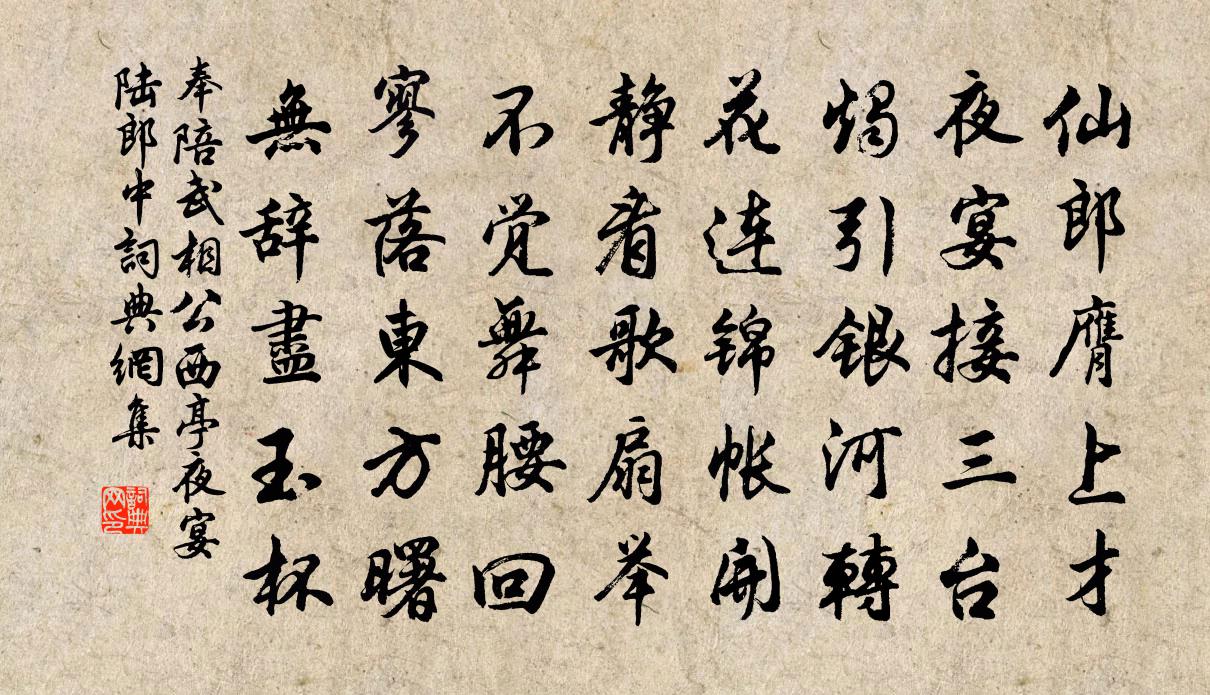 仙郎膺上才
夜宴接三台
烛引银河轉
花连锦帐開
静看歌扇举
不觉舞腰回
寥落東方曙
無辞盡玉杯
奉陪武相公西亭夜宴
陆郎中詞典網集
詞典网印